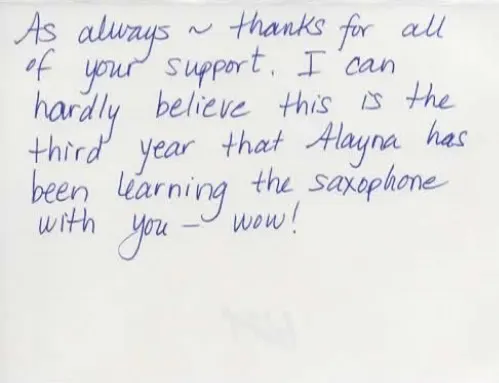 As always ~ thanks for all
of your support. I can
hardly believe this is the
third year that Alayna has
been learning the saxophone
with you – wow!